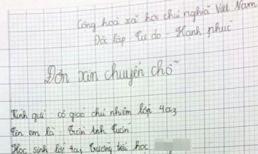 Cộng hoà xã hội chủ nghĩa Việt Nam
Độc lập Tự do - Hạnh phúc
Đơn xin chuyển chỗ
Kính gửi cô giáo chủ nhiệm lớp 4a3
Tên em là Tuấn
Học sinh lớp 4a3 Trường tiểu học